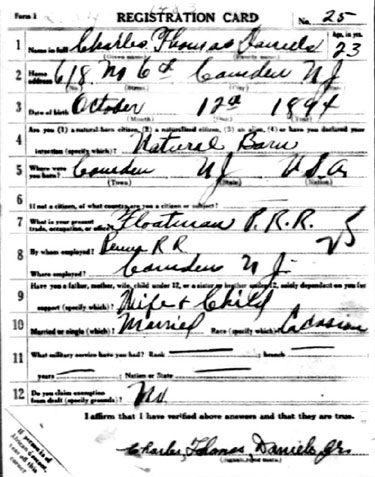 Form 1 REGISTRATION CARD No. 25
1 Name in full Charles Thomas Daniels Age, in yrs. 23
(Given name) (Family name)
2 Home address 618 No 6th Camden NJ
(No.) (Street) (City) (State)
3 Date of birth October 12th 1894
(Month) (Day) (Year)
4 Are you (1) a natural-born citizen, (2) a naturalized citizen, (3) an alien, (4) or have you declared your
intention (specify which)? Natural Born
5 Where were you born? Camden NJ U.S.A.
(Town) (State) (Nation)
6 If not a citizen, of what country are you a citizen or subject?
7 What is your present trade, occupation, or office? Floatman P.R.R.
8 By whom employed? Penna R R
Where employed? Camden N J
9 Have you a father, mother, wife, child under 12, or a sister or brother under 12, solely dependent on you for
support (specify which)? Wife + Child
10 Married or single (which)? Married Race (specify which)? Cacasion
11 What military service have you had? Rank branch
years Nation or State
12 Do you claim exemption from draft (specify grounds)? No
I affirm that I have verified above answers and that they are true.
Charles Thomas Daniels Jr.
If person is of African descent, tear off this corner